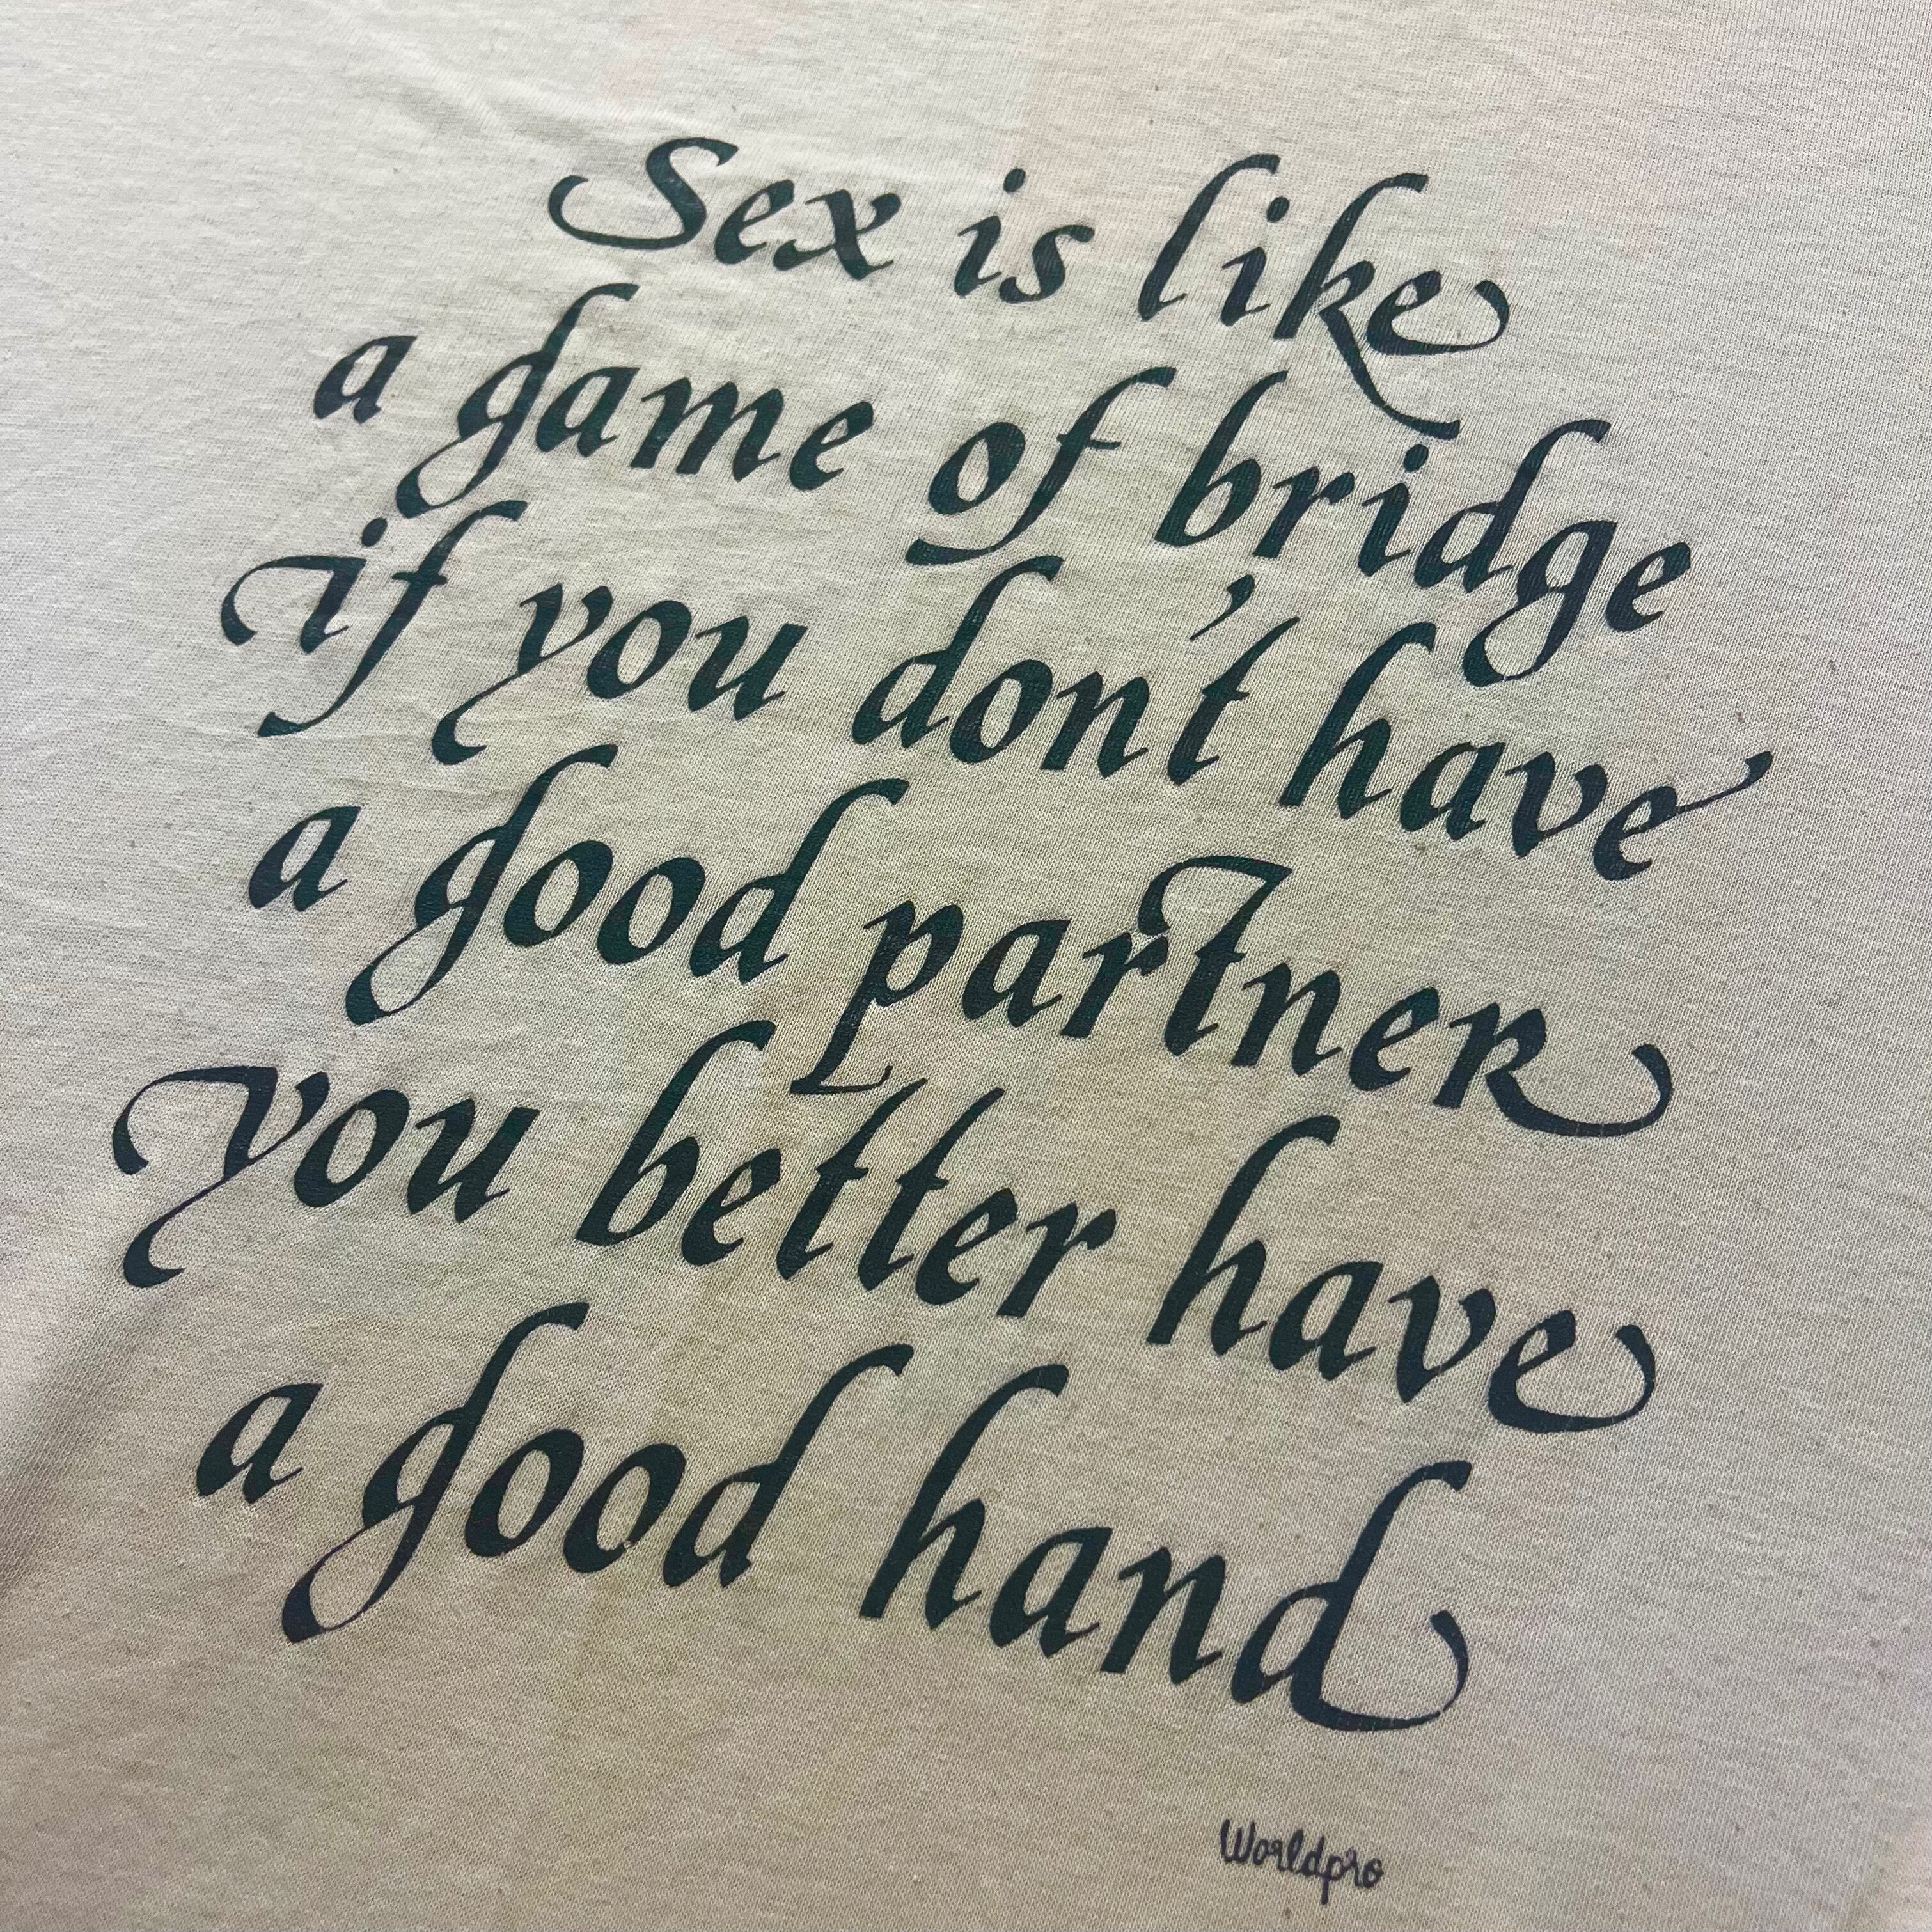 Sex is like
a game of bridge
if you don't have
a good partner
you better have
a good hand
Worldpro